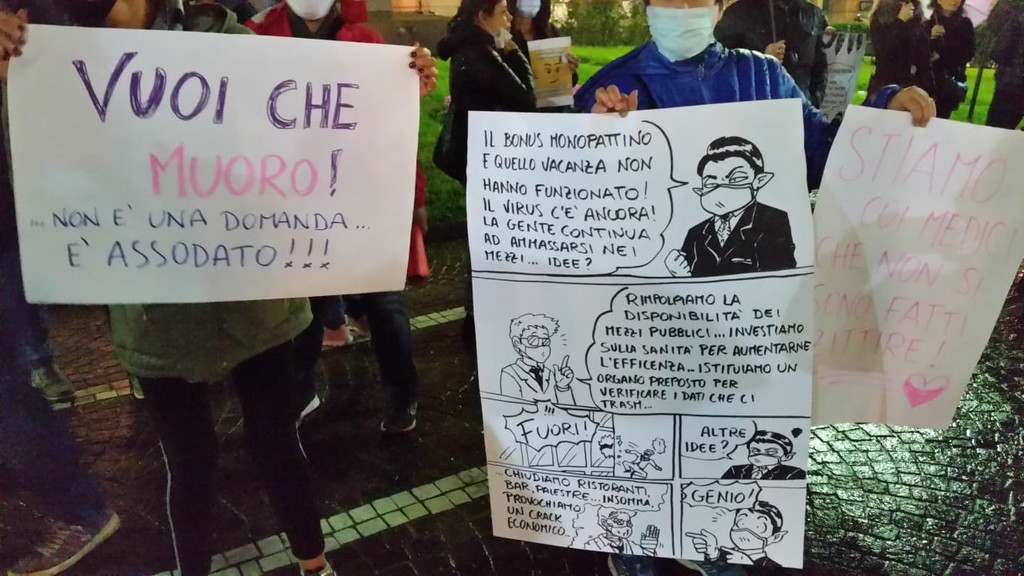 VUOI CHE
MUORO!
...NON E' UNA DOMANDA...
E' ASSODATO!!!
IL BONUS MONOPATTINO
E QUELLO VACANZA NON
HANNO FUNZIONATO!
IL VIRUS C'E' ANCORA!
LA GENTE CONTINUA
AD AMMASSARSI NEI
MEZZI... IDEE?
RIMPOLPIAMO LA
DISPONIBILITÀ DEI
MEZZI PUBBLICI... INVESTIAMO
SULLA SANITA' PER AUMENTARNE
L'EFFICENZA... ISTITUIAMO UN
ORGANO PREPOSTO PER
VERIFICARE I DATI CHE CI
TRASM...
!!!
FUORI!!
ALTRE
IDEE?
CHIUDIAMO RISTORANTI,
BAR, PALESTRE... INSOMMA.
PROVOCHIAMO
UN CRACK
ECONOMICO.
GENIO!
STIAMO
CUI MEDICI
CHE NON SI
SONO FATTI
ZITTIRE!